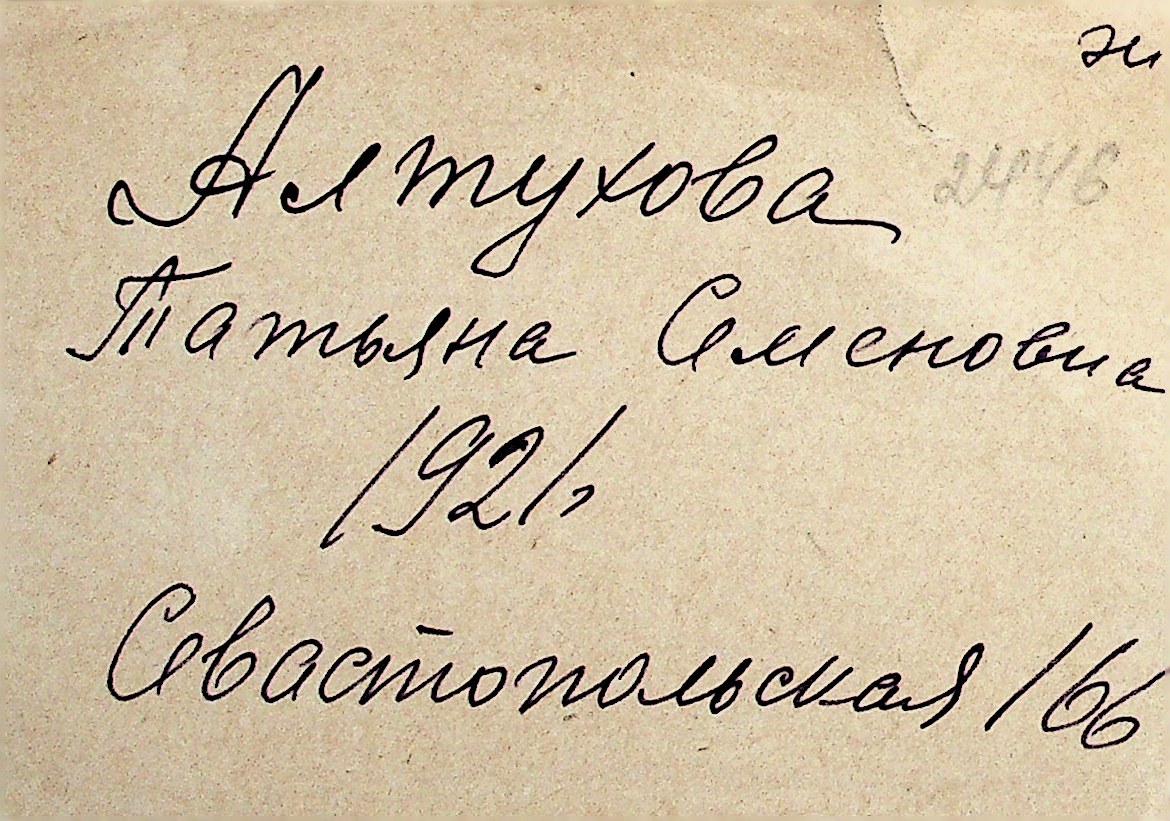 2446
Алтухова
Татьяна Семеновна
1921г
Севастопольская 166